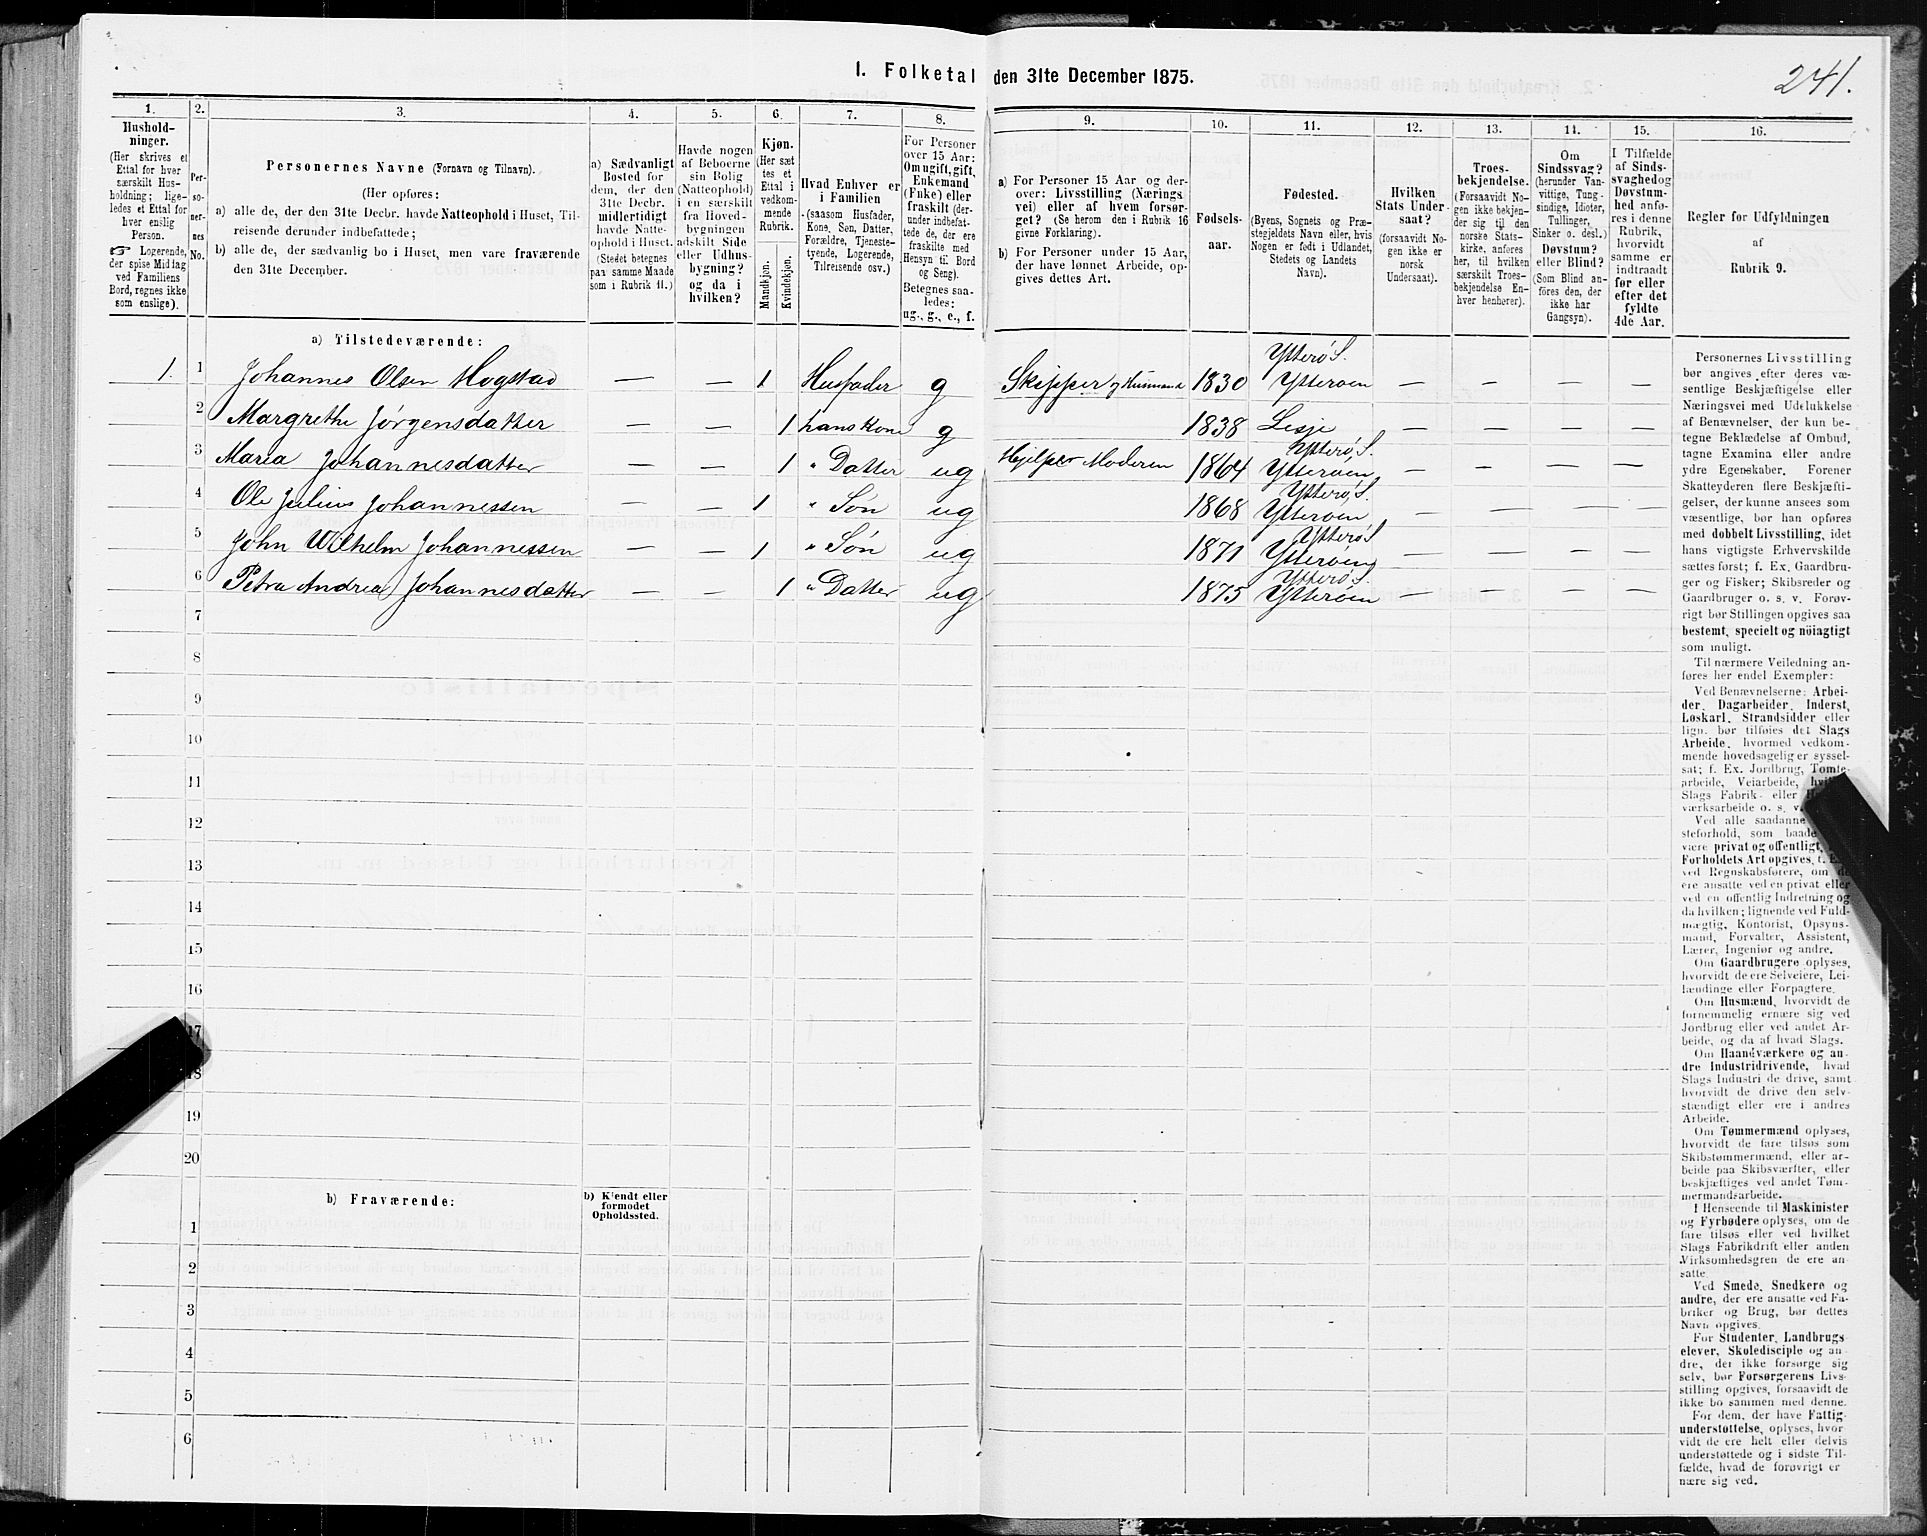 1. Folketal den 31te December 1875.
241.
1. 2. 3. 4. 5. 6. 7. 8. 9. 10. 11. 12. 13. 14. 15. 16.
Hushold-
ninger.
(Her skrives et
Ettal for hver
særskilt Hus-
holdning; lige-
ledes et Ettal for
hver enslig
Person.
☞ Logerende,
der spise Middag
ved Familiens
Bord, regnes ikke
som enslige).
Per-
so-
ner-
nes
No.
Personernes Navne (Fornavn og Tilnavn).
(Her opføres:
a) alle de, der den 31te Decbr. havde Natteophold i Huset, Til-
reisende derunder indbefattede;
b) alle de, der sædvanlig bo i Huset, men vare fraværende
den 31te December.
a) Sædvanligt
Bosted for
dem, der den
31te Decbr.
midlertidigt
havde Natte-
ophold i Huset.
(Stedet betegnes
paa samme Maade
som i Rubrik 11.)
Havde nogen
af Beboerne
sin Bolig
(Natteophold)
i en særskilt
fra Hoved-
bygningen
adskilt Side
eller Udhus-
bygning?
og da i
hvilken?
Kjøn.
(Her sæt
tes et
Ettal i
vedkom-
mende
Rubrik.
Mandkjøn.
Kvindekjøn.
Hvad Enhver er
i Familien
(saasom Husfader,
Kone, Søn, Datter,
Forældre, Tjeneste-
tyende, Logerende,
Tilreisende osv.)
For Personer
over 15 Aar:
Om ugift, gift,
Enkemand
(Enke) eller
fraskilt (der-
under indbefat-
tede de, der ere
fraskilte med
Hensyn til Bord
og Seng).
Betegnes saa-
ledes:
ug., g., e., f.
a) For Personer 15 Aar og der-
over: Livsstilling (Nærings
vei) eller af hvem forsør-
get? (Se herom den i Rubrik 16
givne Forklaring).
b) For Personer under 15 Aar,
der have lønnet Arbeide, op-
gives dettes Art.
Fødsels-
aar.
Fødested.
(Byens, Sognets og Præ-
stegjeldets Navn eller, hvis
Nogen er født i Udlandet,
Stedets og Landets
Navn).
Hvilken
Stats Under-
saat?
(forsaavidt No-
gen ikke er
norsk
Undersaat).
Troes-
bekjendelse.
(Forsaavidt No-
gen ikke bekjen-
der sig til den
norske Stats-
kirke, anføres
her, til hvilken
særskilt Troes-
bekjendelse En-
hver henhører).
Om
Sindssvag?
(herunder Van-
vittige, Tung-
sindige, Idioter,
Tullinger,
Sinker o. desl.)
Døvstum?
eller Blind?
(Som Blind an-
føres den, der
ikke har
Gangsyn).
I Tilfælde
af Sinds-
svaghed og
Døvstum-
hed anfø-
res i denne
Rubrik,
hvorvidt
samme er
indtraadt
før eller
efter det
fyldte
4de Aar.
Regler for Udfyldningen
af
Rubrik 9.
a) Tilstedeværende:
1. 1 Johannes Olsen Hogstad — — 1 Husfader g Skipper og Husmand 1830 Ytterø S. Ytterøen — — — —
2 Margrethe Jørgensdatter — — 1 hans Kone g 1838 Lesje — — — —
3 Maria Johannesdatter — — 1 " Datter ug Hjelper Moderen 1864 Ytterø S. Ytterøen — — — —
4 Ole Julius Johannessen — — 1 " Søn ug 1868 Ytterø S. Ytterøen — — — —
5 John Wilhelm Johannessen — — 1 " Søn ug 1871 Ytterø S Ytterøen — — — —
6 Petra Andrea Johannesdatter — — 1 " Datter ug 1875 Ytterø S. Ytterøen — — — —
7
8
9
10
11
12
13
14
15
16
17
18
19
20
b) Fraværende:
b) Kjendt eller
formodet
Opholdssted.
1
2
3
4
5
6
Personernes Livsstilling
bør angives efter deres væ-
sentlige Beskjæftigelse eller
Næringsvei med Udelukkelse
af Benævnelser, der kun be-
tegne Beklædelse af Ombud,
tagne Examina eller andre
ydre Egenskaber. Forener
Skatteyderen flere Beskjæfti-
gelser, der kunne ansees som
væsentlige, bør han opføres
med dobbelt Livsstilling, idet
hans vigtigste Erhvervskilde
sættes først; f. Ex. Gaardbru-
ger og Fisker; Skibsreder og
Gaardbruger o. s. v. Forøv-
rigt bør Stillingen opgives saa
bestemt, specielt og nøiagtigt
som muligt.
Til nærmere Veiledning an-
føres her endel Exempler:
Ved Benævnelserne: Arbei-
der, Dagarbeider, Inderst,
Løskarl, Strandsidder eller
lign. bør tilføies det Slags
Arbeide, hvormed vedkom-
mende hovedsagelig er syssel-
sat; f. Ex. Jordbrug, Tomte-
arbeide, Veiarbeide,
Slags Fabrik- eller
værksarbeide o. s. v.
Ved alle saadanne
steforhold, som baade
være privat og offentligt,
Forholdets Art opgives, f. E
ved Regnskabsførere, om de
ere ansatte ved en privat eller
ved en offentlig Indretning og
da hvilken; lignende ved Fuld-
mægtig, Kontorist, Opsyns-
mand, Forvalter, Assistent,
Lærer, Ingeniør og andre.
Om Gaardbrugere oplyses,
hvorvidt de ere Selveiere, Lei-
lændinge eller Forpagtere.
Om Husmænd, hvorvidt de
fornemmelig ernære sig ved
Jordbrug eller ved andet Ar-
beide, og da af hvad Slags.
Om Haandværkere og an-
dre Industridrivende, hvad
Slags Industri de drive, samt
hvorvidt de drive den selv-
stændigt eller ere i andres
Arbeide.
Om Tømmermænd oplyses,
hvorvidt de fare tilsøs som
Skibstømmermænd, eller ar-
beide paa Skibsværfter, eller
beskjæftiges ved andet Tøm-
mermandsarbeide.
I Henseende til Maskinister
og Fyrbødere oplyses, om de
fare tilsøs eller ved hvilket
Slags Fabrikdrift eller anden
Virksomhedsgren de ere an-
satte.
Ved Smede, Snedkere og
andre, der ere ansatte ved Fa-
briker og Brug, bør dettes
Navn opgives.
For Studenter, Landbrugs-
elever, Skoledisciple og an-
dre, der ikke forsørge sig
selv, bør Forsørgerens Livs-
stilling opgives, forsaavidt de
ikke bo sammen med denne.
For dem, der have Fattig-
understøttelse, oplyses, hvor-
vidt de ere helt eller delvis
understøttede og i sidste Til-
fælde, hvad de forøvrigt er
nære sig ved.